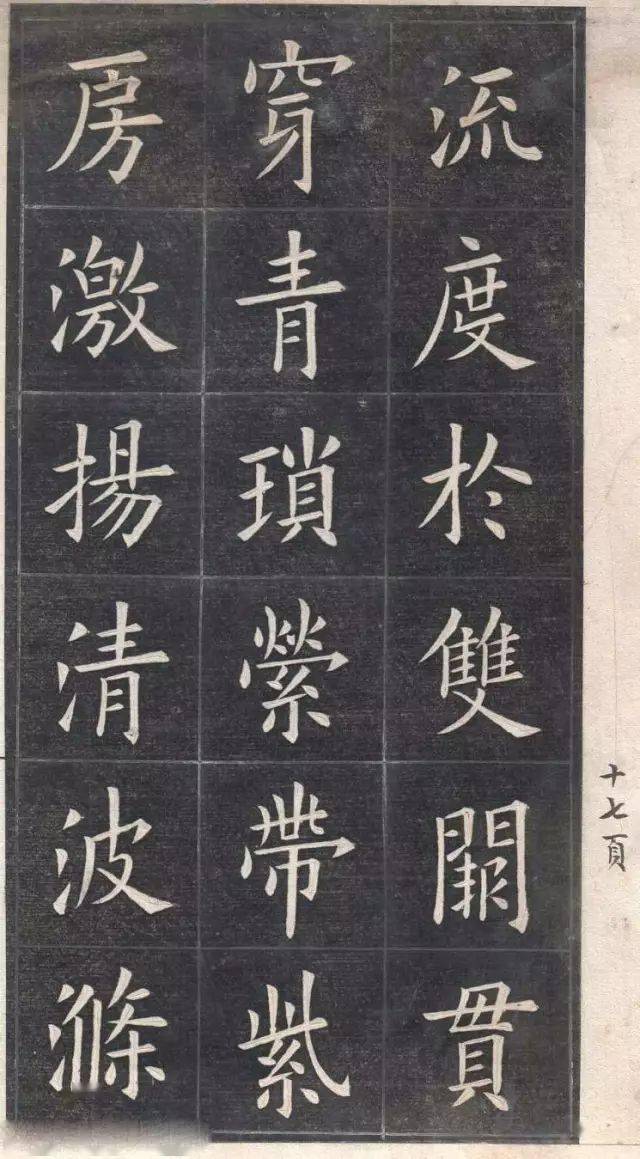 流度於雙闕貫
穿青瑣縈帶紫
房激揚清波滌
十七頁